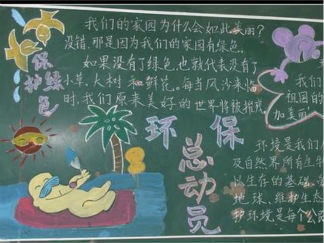 保护绿色
我们的家园为什么会如此美丽?
没错,那是因为我们的家园有绿色。
如果没有了绿色,也就代表没有了
小草、大树和鲜花。每当风沙来临
时,我们原来美好的世界将被摧
环保
总动员
我们
祖国的
加美丽
环境是我们
及自然界所有生
以生存的基础
地球、维护生态
护环境是每个公